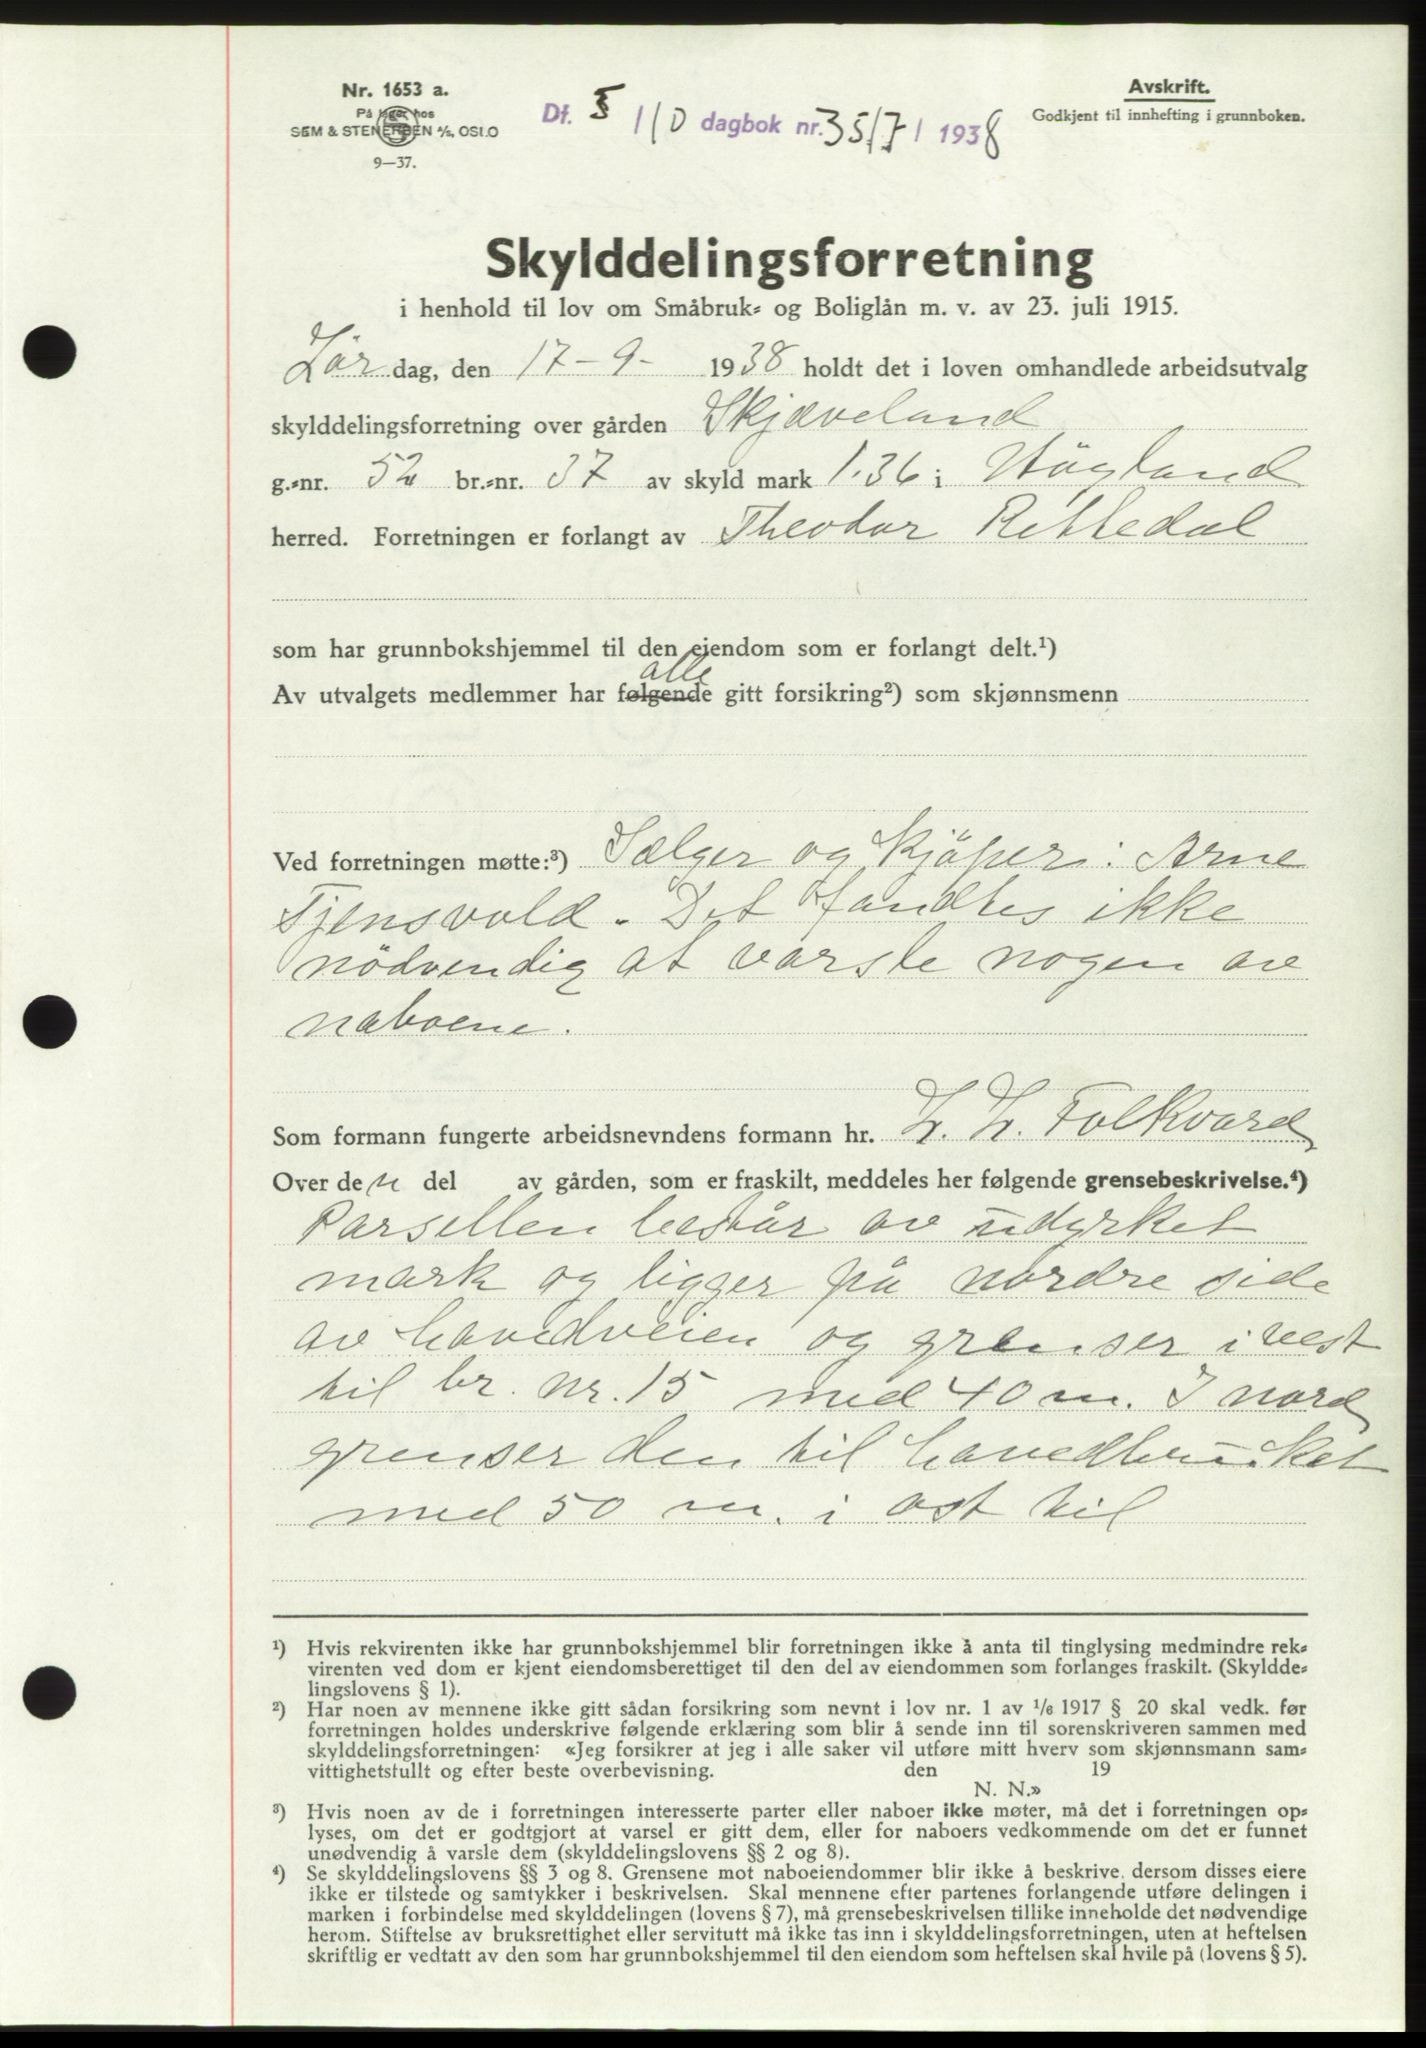 Nr. 1653 a.
På lager hos
SEM & STENERSEN A/S, OSLO
9—37.
Df. 5 /10 dagbok nr. 3517 / 1938
Avskrift.
Godkjent til innhefting i grunnboken.
Skylddelingsforretning
i henhold til lov om Småbruk- og Boliglån m. v. av 23. juli 1915.
Lör dag, den 17-9- 1938 holdt det i loven omhandlede arbeidsutvalg
skylddelingsforretning over gården Skjæveland
g.-nr. 52 br.-nr. 37 av skyld mark 1.36 i Högland
herred. Forretningen er forlangt av Theodor Rettedal
som har grunnbokshjemmel til den eiendom som er forlangt delt.¹)
alle
Av utvalgets medlemmer har følgende gitt forsikring²) som skjønnsmenn
Ved forretningen møtte:³) Sælger og kjöper: Arne
Tjensvold. Det fandtes ikke
nödvendig at varsle nogen av
naboene.
Som formann fungerte arbeidsnevndens formann hr. L. L. Folkvord
Over den del av gården, som er fraskilt, meddeles her følgende grensebeskrivelse.⁴)
Parsellen består av udyrket
mark og ligger på nordre side
av hovedveien og grenser i vest
til br. nr. 15 med 40 m. I nord
grenser den til hovedbruket
med 50 m. i ost til
¹) Hvis rekvirenten ikke har grunnbokshjemmel blir forretningen ikke å anta til tinglysing medmindre rek-
virenten ved dom er kjent eiendomsberettiget til den del av eiendommen som forlanges fraskilt. (Skyldde-
lingslovens § 1).
²) Har noen av mennene ikke gitt sådan forsikring som nevnt i lov nr. 1 av 1/6 1917 § 20 skal vedk. før
forretningen holdes underskrive følgende erklæring som blir å sende inn til sorenskriveren sammen med
skylddelingsforretningen: «Jeg forsikrer at jeg i alle saker vil utføre mitt hverv som skjønnsmann sam-
vittighetsfullt og efter beste overbevisning. den 19
N. N.»
³) Hvis noen av de i forretningen interesserte parter eller naboer ikke møter, må det i forretningen op-
lyses, om det er godtgjort at varsel er gitt dem, eller for naboers vedkommende om det er funnet
unødvendig å varsle dem (skylddelingslovens §§ 2 og 8).
⁴) Se skylddelingslovens §§ 3 og 8. Grensene mot naboeiendommer blir ikke å beskrive, dersom disses eiere
ikke er tilstede og samtykker i beskrivelsen. Skal mennene efter partenes forlangende utføre delingen i
marken i forbindelse med skylddelingen (lovens § 7), må grensebeskrivelsen tillike inneholde det nødvendige
herom. Stiftelse av bruksrettighet eller servitutt må ikke tas inn i skylddelingsforretningen, uten at heftelsen
skriftlig er vedtatt av den som har grunnbokshjemmel til den eiendom som heftelsen skal hvile på (lovens § 5).